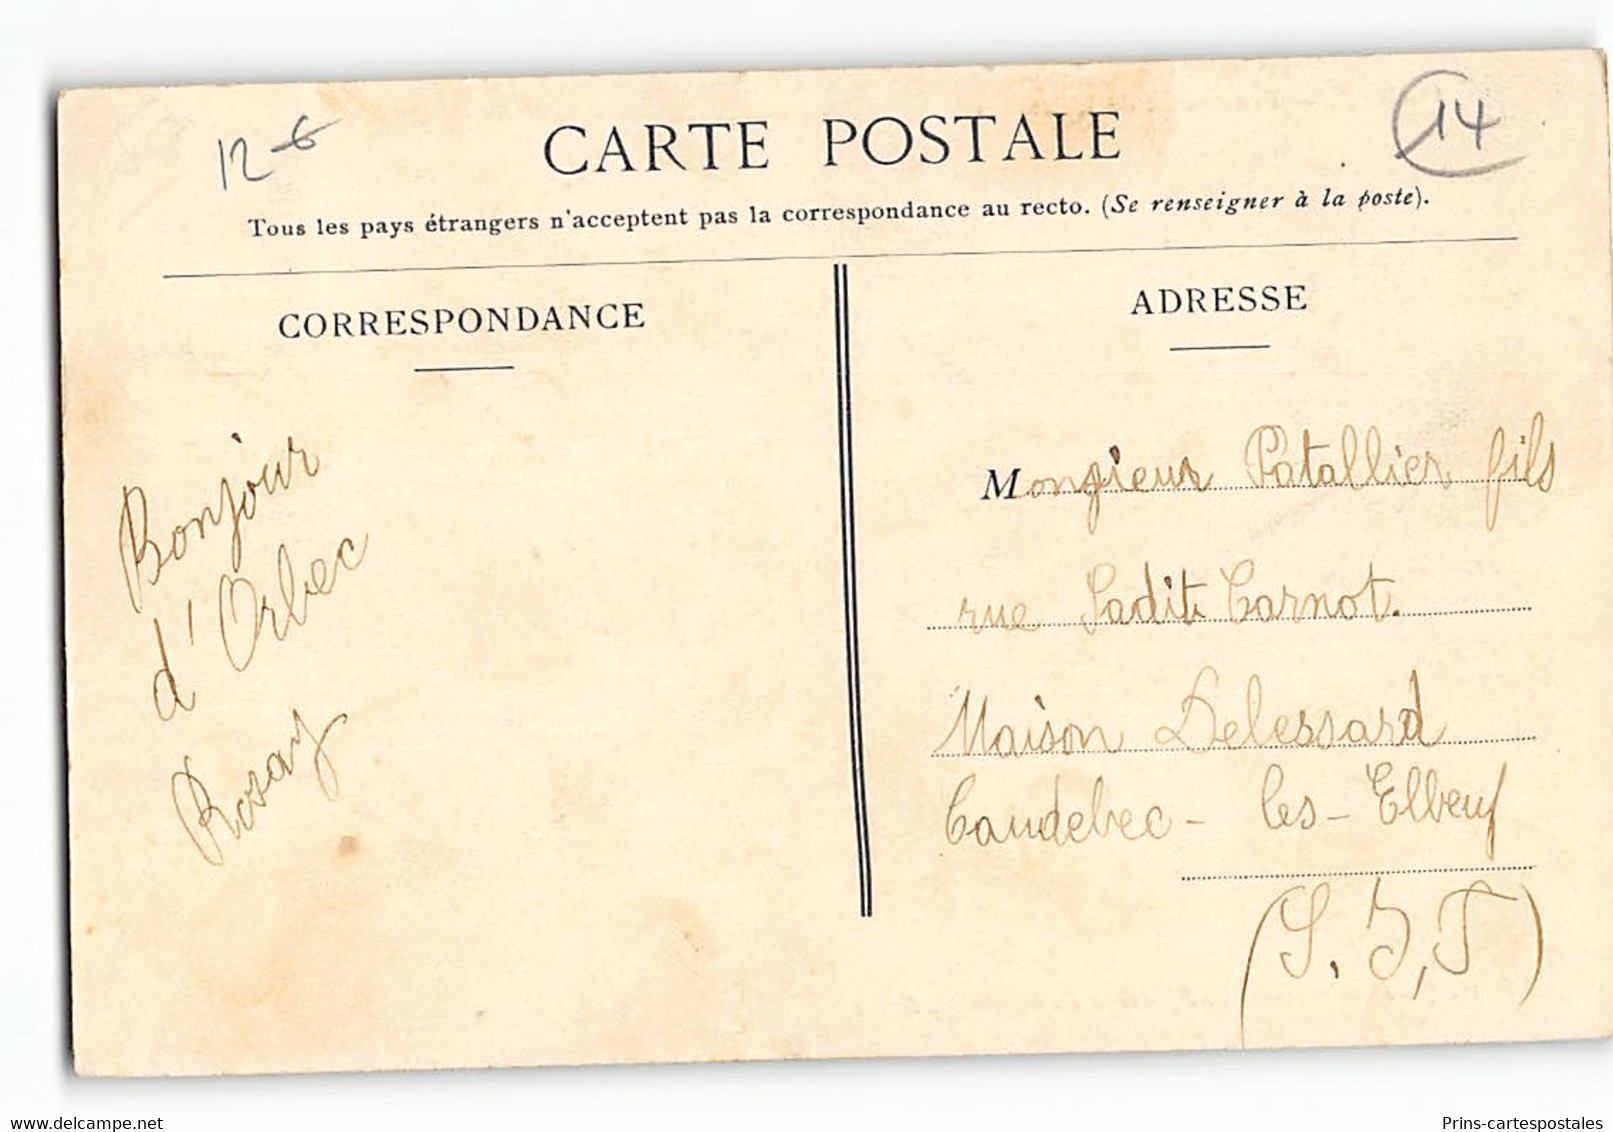 12-6
14
CARTE POSTALE
Tous les pays étrangers n'acceptent pas la correspondance au recto. (Se renseigner à la poste).
CORRESPONDANCE
Bonjour
d'Orbec
Rosay
ADRESSE
Monsieur Patallier fils
rue Sadit Carnot.
Maison Delessard
Caudebec - les - Elbeuf
(S. I, J)
delcampe.net
Prins-cartespostales